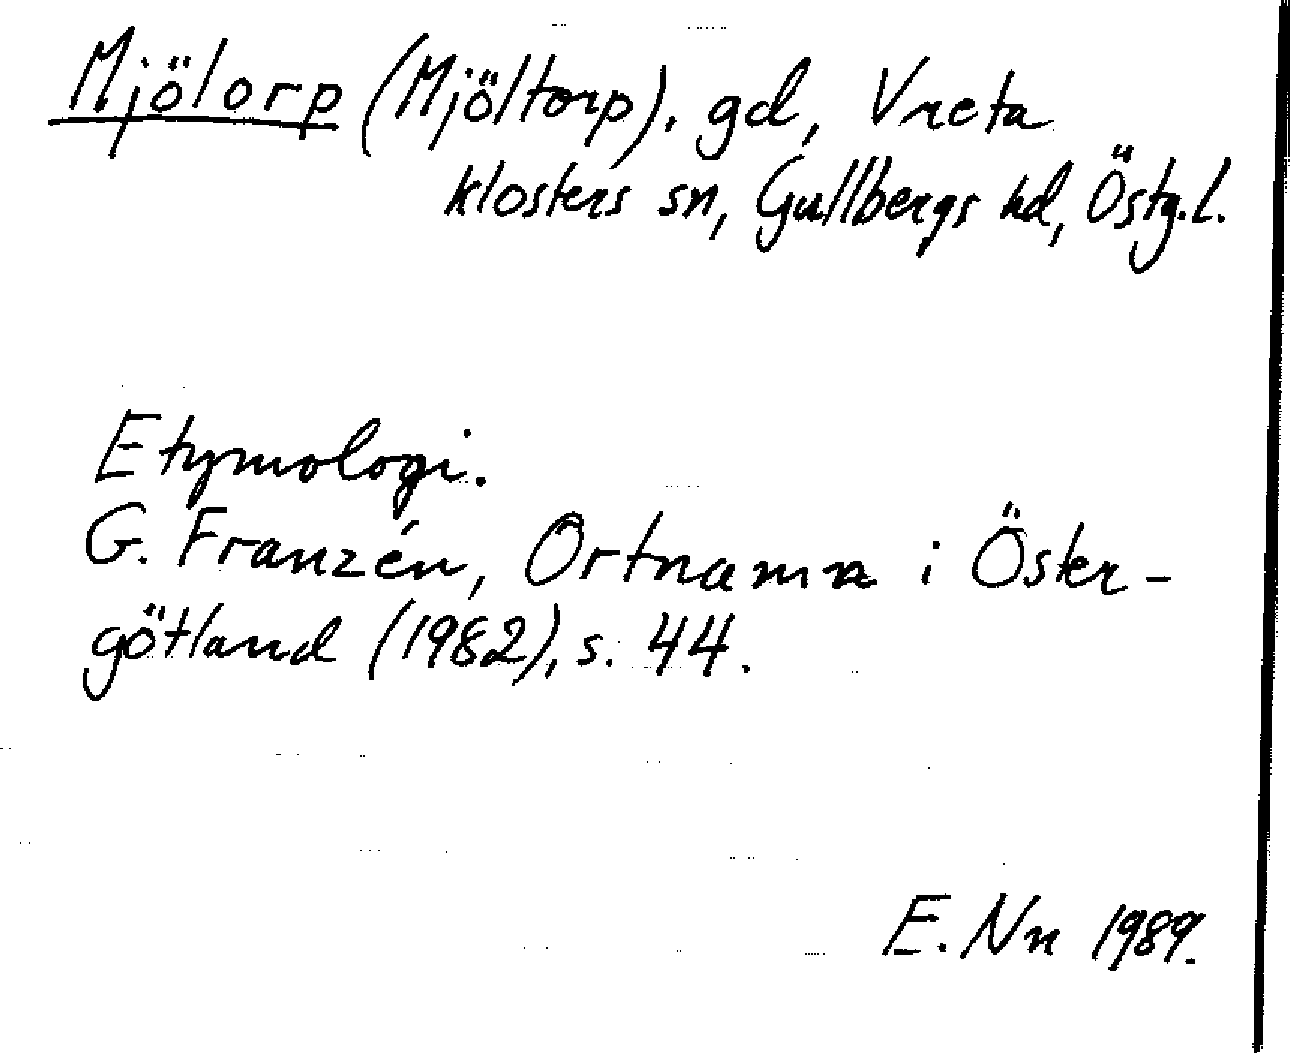 Mjölorp (Mjöltorp). gd, Vreta
klosters sn, Gullbergs hd, Östg.l.
Etymologi.
G. Franzén, Ortnamn i Öster-
götland (1982), s. 44.
E. Nn 1989.